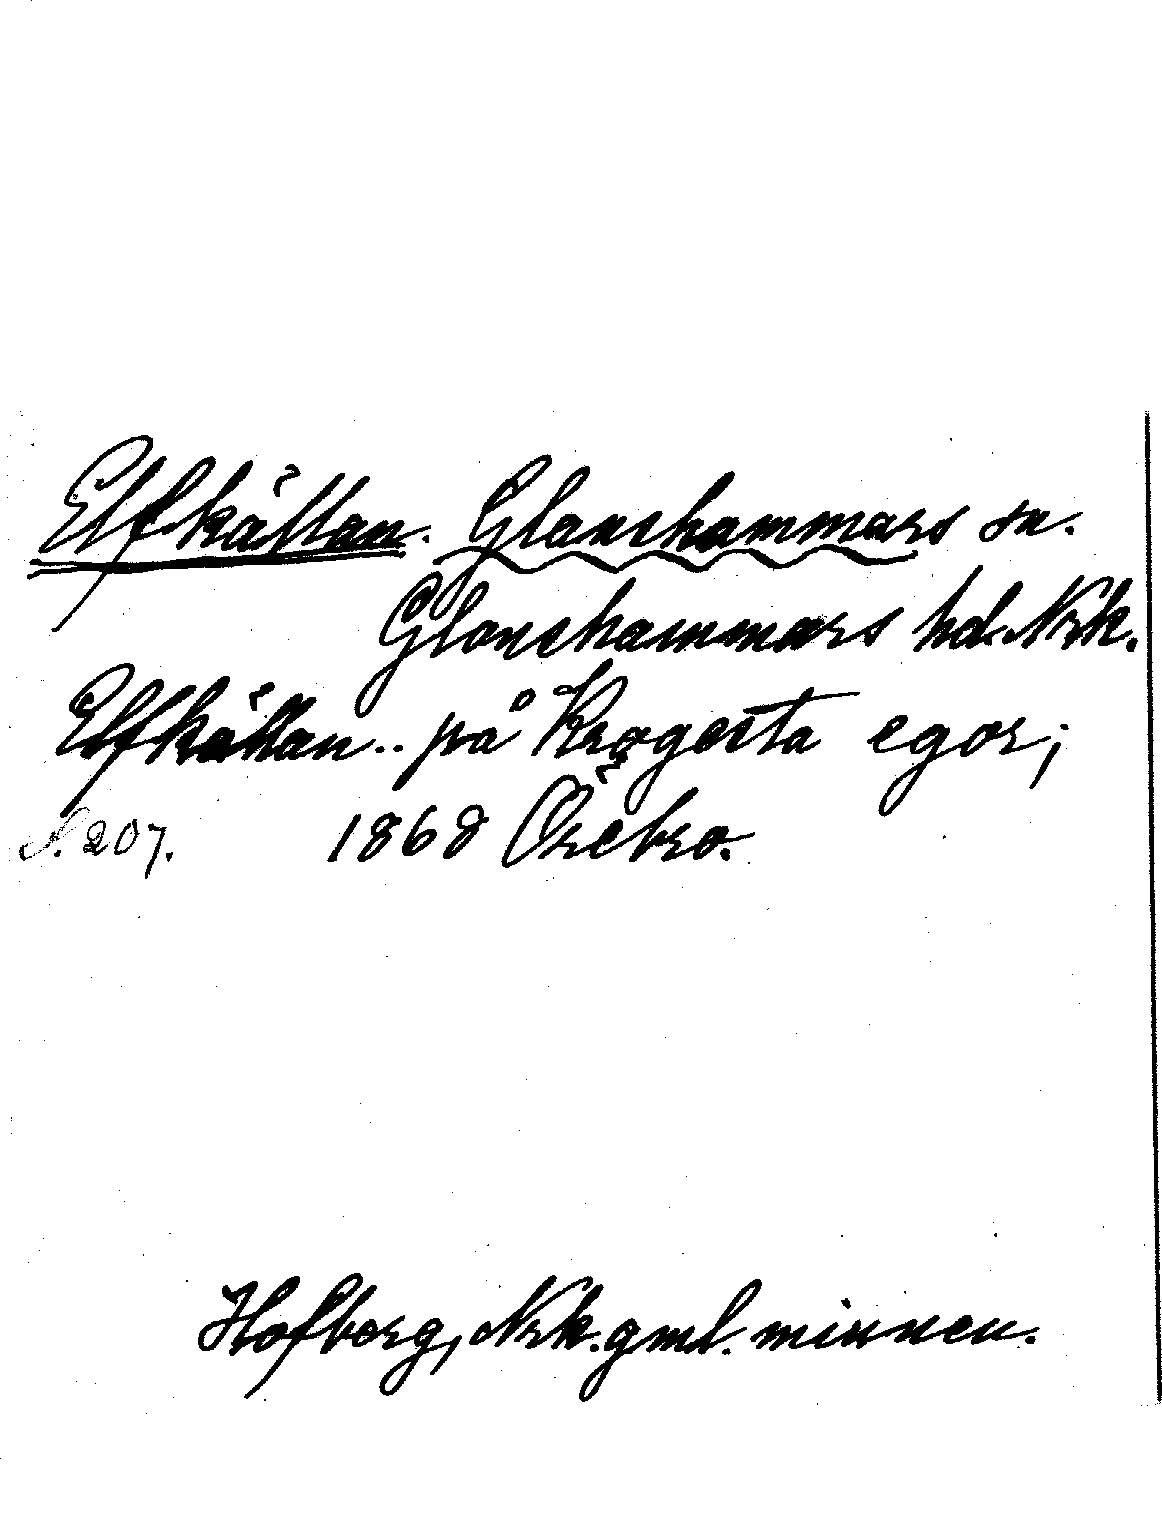 Elfkällan. Glanshammars sn.
Glanshammars hd. Nrk.
Elfkällan .. på Krogesta egor;
S. 207. 1868 Örebro.
Hofberg, Nrk. gml. minnen.